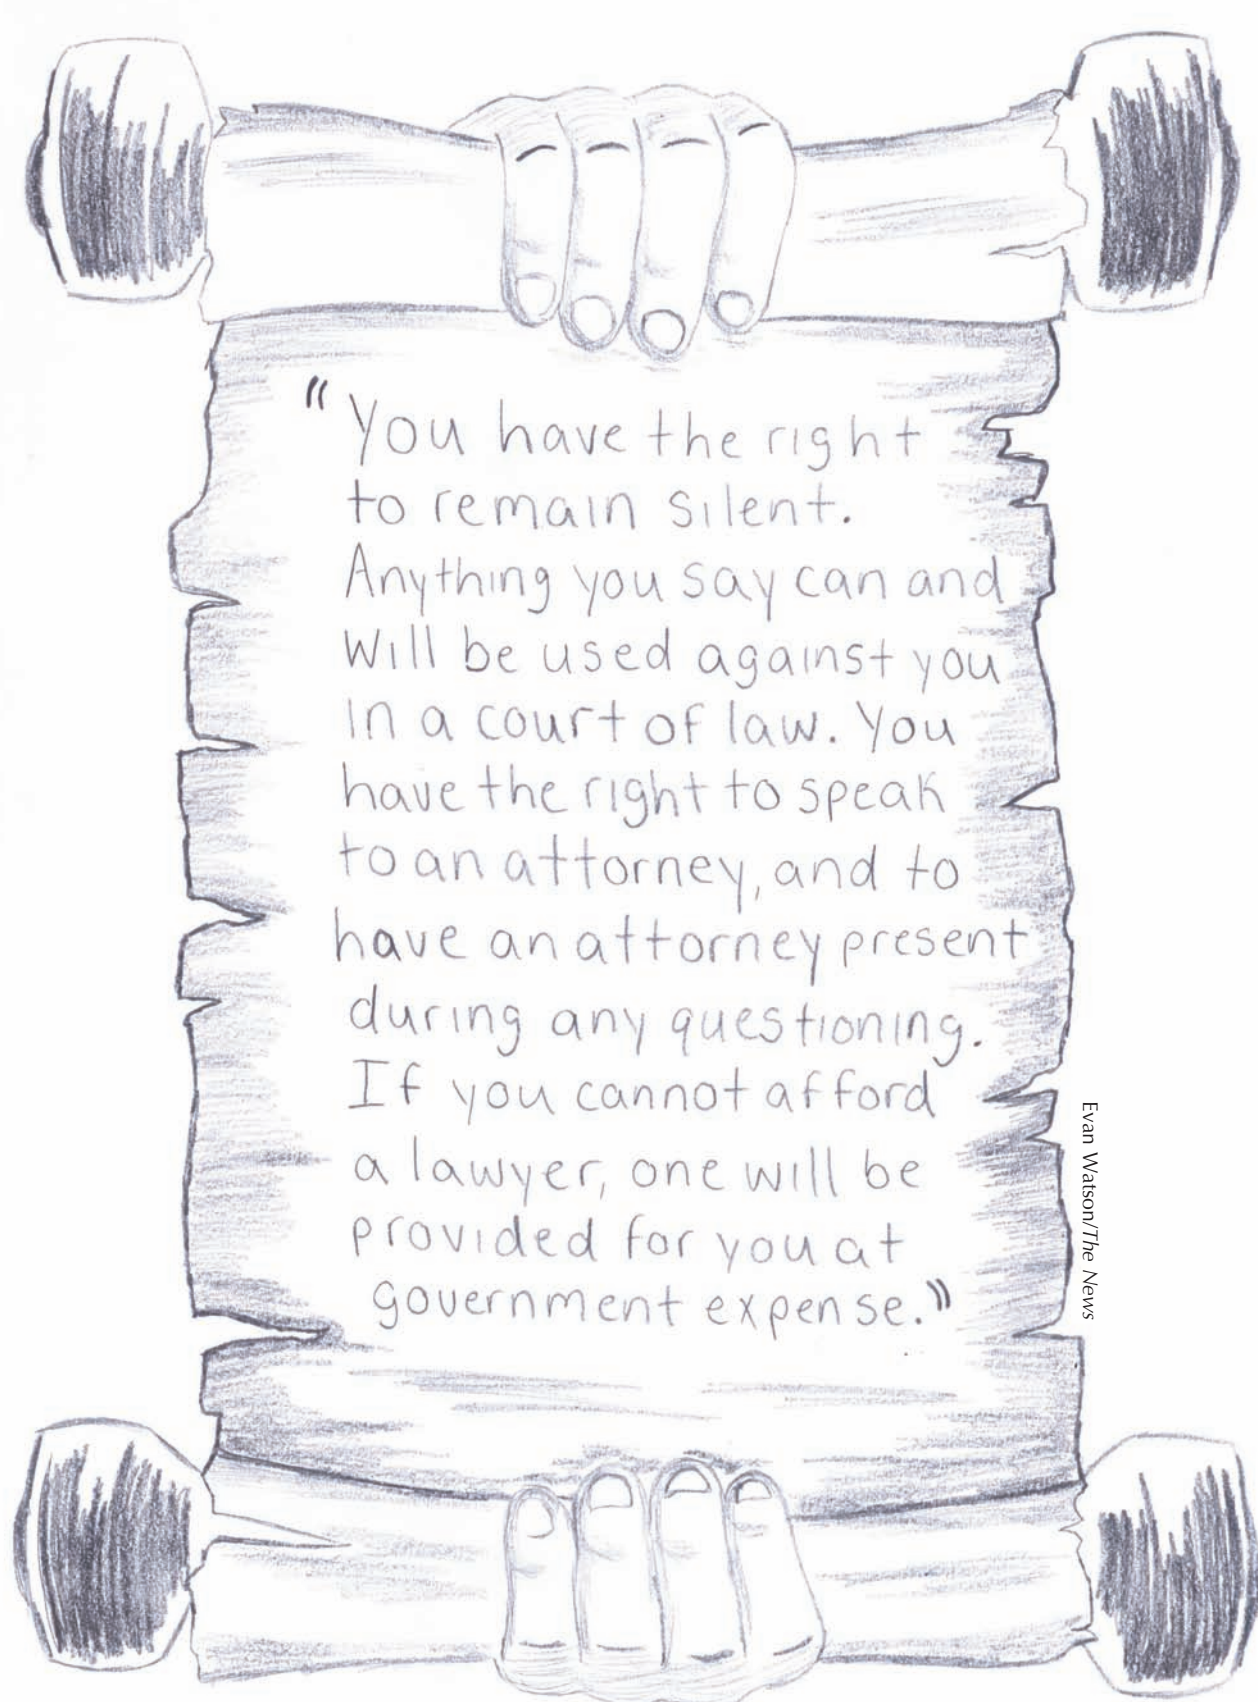 “You have the right
to remain silent.
Anything you say can and
will be used against you
in a court of law. You
have the right to speak
to an attorney, and to
have an attorney present
during any questioning.
If you cannot afford
a lawyer, one will be
provided for you at
government expense.”
Evan Watson/The News